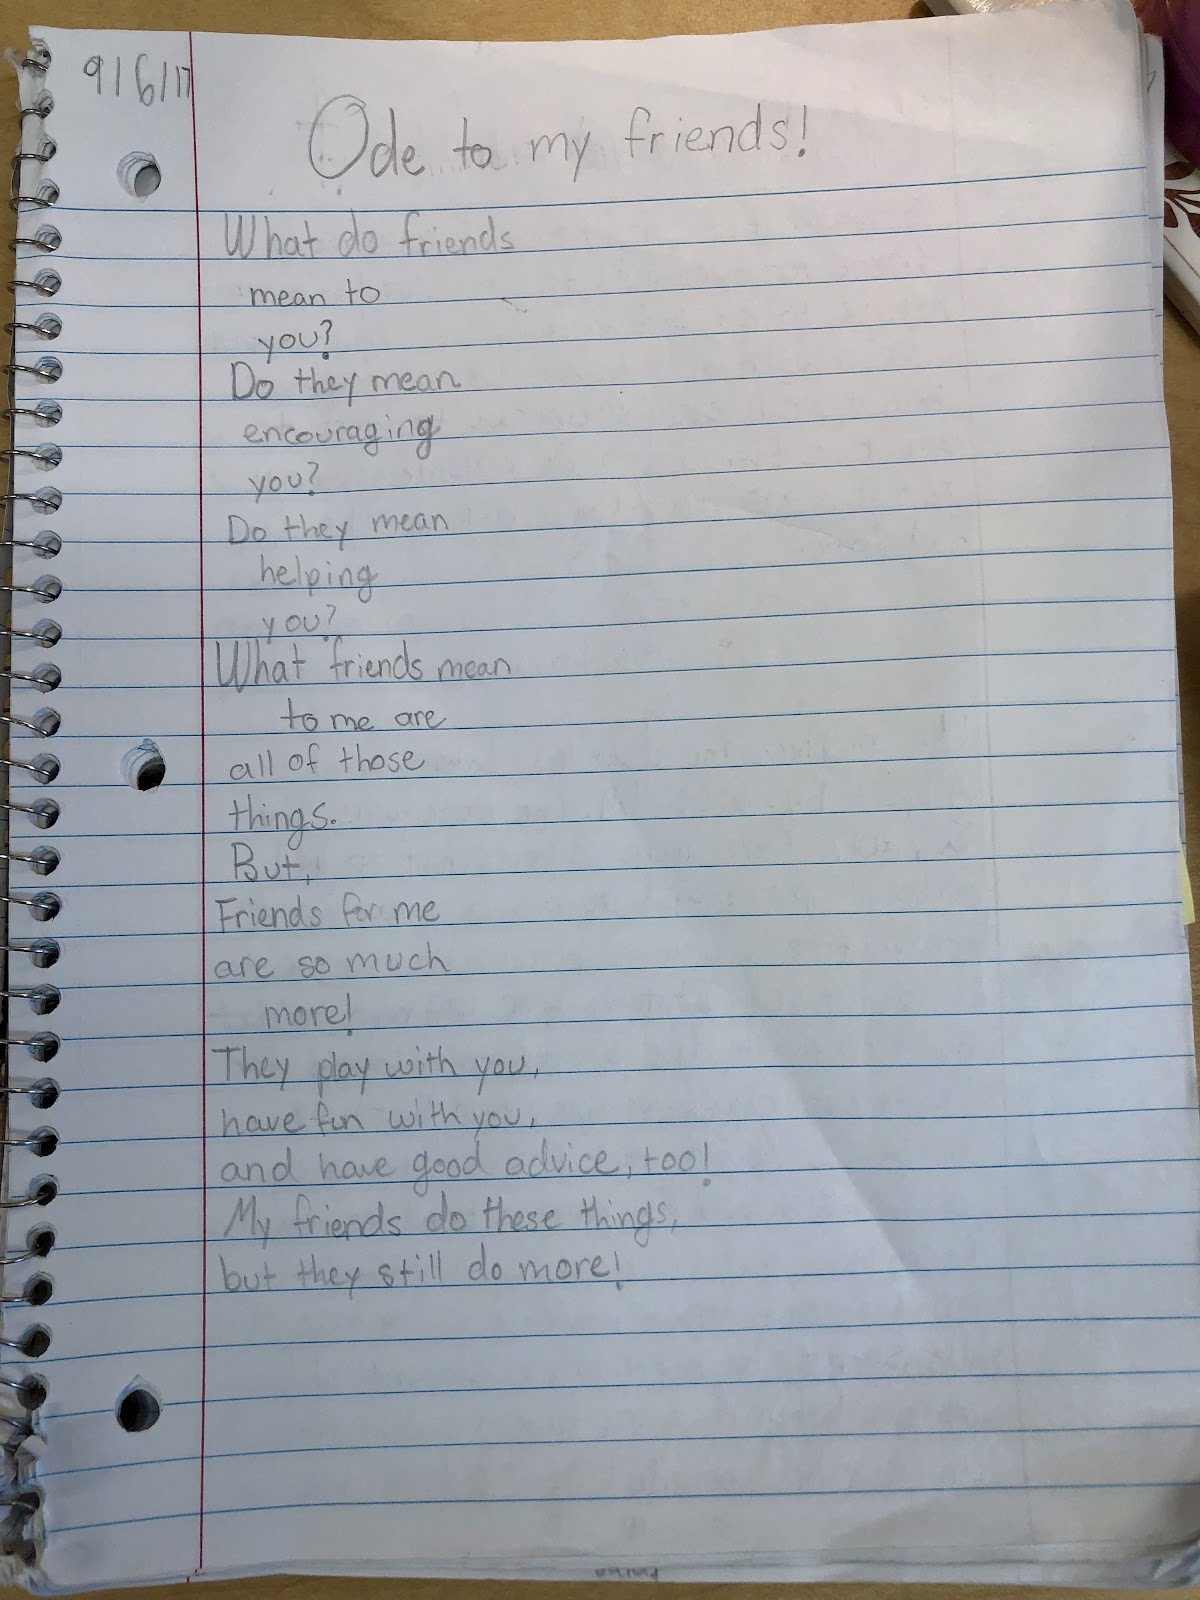 9/6/17
Ode to my friends!
What do friends
mean to
you?
Do they mean
encouraging
you?
Do they mean
helping
you?
What friends mean
to me are
all of those
things.
But,
Friends for me
are so much
more!
They play with you,
have fun with you,
and have good advice, too!
My friends do these things,
but they still do more!